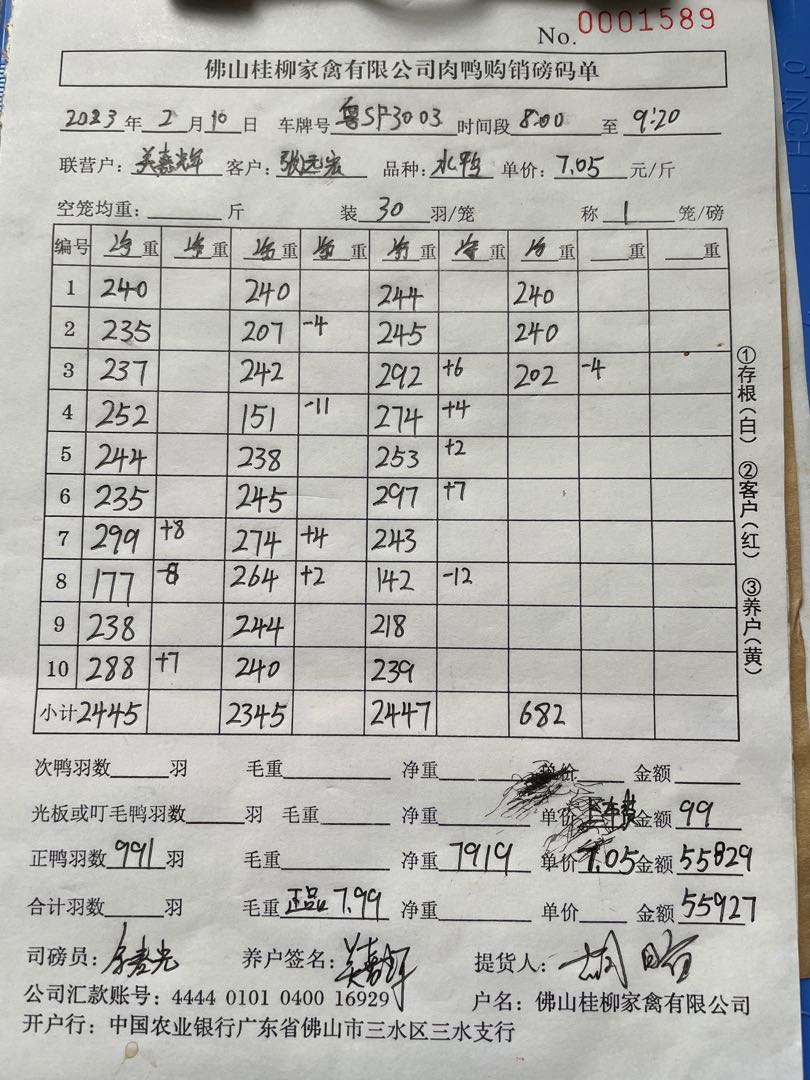 No. 0001589
佛山桂柳家禽有限公司肉鸭购销磅码单
2023年 2 月 10 日 车牌号 粤SF3003 时间段 8:00 至 9:20
联营户: 客户: 张远宏 品种: 水鸭 单价: 7.05 元/斤
空笼均重: 斤 装 30 羽/笼 称 1 笼/磅
编号 重 重 重 重 重 重 重 重 重
1 240 240 244 240
2 235 207 -4 245 240
3 237 242 292 +6 202 -4
4 252 151 -11 274 +4
5 244 238 253 +2
6 235 245 297 +7
7 299 +8 274 +4 243
8 177 -8 264 +2 142 -12
9 238 244 218
10 288 +7 240 239
小计 2445 2345 2447 682
①存根(白) ②客户(红) ③养户(黄)
次鸭羽数 羽 毛重 净重 单价 金额
光板或叮毛鸭羽数 羽 毛重 净重 单价 上车费 金额 99
正鸭羽数 991 羽 毛重 净重 7919 单价 7.05 金额 55829
合计羽数 羽 毛重 正品 7.99 净重 单价 金额 55927
司磅员: 养户签名: 提货人:
公司汇款账号: 4444 0101 0400 16929 户名: 佛山桂柳家禽有限公司
开户行: 中国农业银行广东省佛山市三水区三水支行
0 INCH